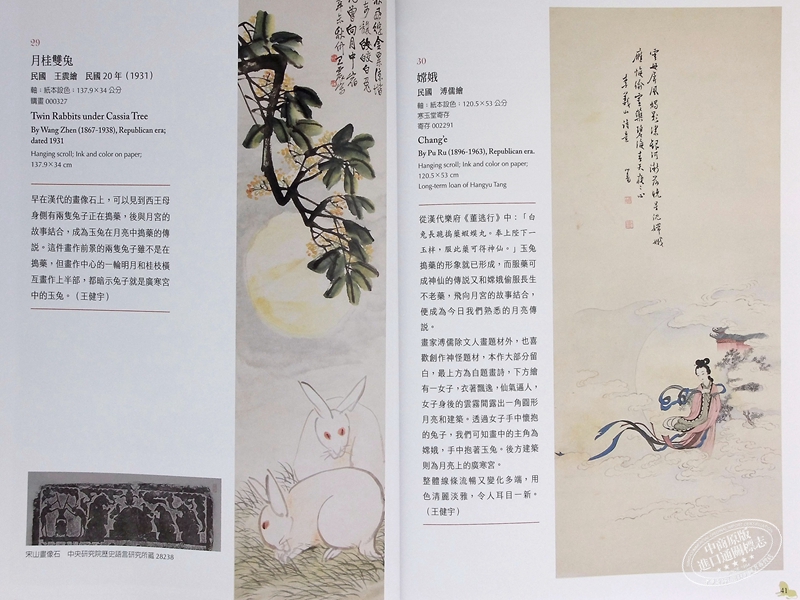 29
月桂雙兔
民國 王震繪 民國20年（1931）
軸：紙本設色：137.9×34公分
購畫000327
Twin Rabbits under Cassia Tree
By Wang Zhen (1867-1938), Republican era;
dated 1931
Hanging scroll; Ink and color on paper;
137.9×34 cm
早在漢代的畫像石上，可以見到西王母
身側有兩隻兔子正在搗藥，後與月宮的
故事結合，成為玉兔在月亮中搗藥的傳
說。這件畫作前景的兩隻兔子雖不是在
搗藥，但畫作中心的一輪明月和桂枝橫
互畫作上半部，都暗示兔子就是廣寒宮
中的玉兔。（王健宇）
宋山畫像石 中央研究院歷史語言研究所藏28238
30
嫦娥
民國 溥儒繪
軸：紙本設色：120.5×53公分
寒玉堂寄存
寄存002291
Chang'e
By Pu Ru (1896-1963), Republican era.
Hanging scroll; Ink and color on paper;
120.5×53 cm
Long-term loan of Hangyu Tang
從漢代樂府《董逃行》中：「白
兔長跪搗藥蝦蟆丸。奉上陛下一
玉柈，服此藥可得神仙。」玉兔
搗藥的形象就已形成，而服藥可
成神仙的傳說又和嫦娥偷服長生
不老藥，飛向月宮的故事結合，
便成為今日我們熟悉的月亮傳
說。
畫家溥儒除文人畫題材外，也喜
歡創作神怪題材，本作大部分留
白，最上方為自題畫詩，下方繪
有一女子，衣著飄逸，仙氣逼人，
女子身後的雲霧間露出一角圓形
月亮和建築。透過女子手中懷抱
的兔子，我們可知畫中的主角為
嫦娥，手中抱著玉兔。後方建築
則為月亮上的廣寒宮。
整體線條流暢又變化多端，用
色清麗淡雅，令人耳目一新。
（王健宇）
雲母屏風燭影深銀河漸落曉星沈嫦娥
應悔偷靈藥碧海青天夜夜心
李義山詩意
中商原版
進口通關標志
41